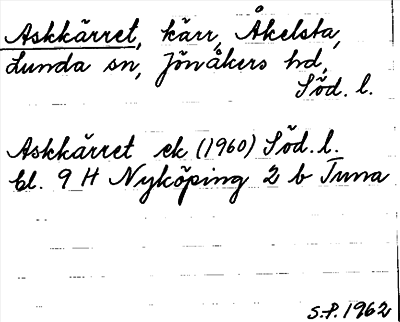 Askkärret, kärr, Åkelsta,
Lunda sn, Jönåkers hd,
Söd. l.
Askkärret ek (1960) Söd. l.
bl. 9 H Nyköping 2 b Tuna
S.P. 1962